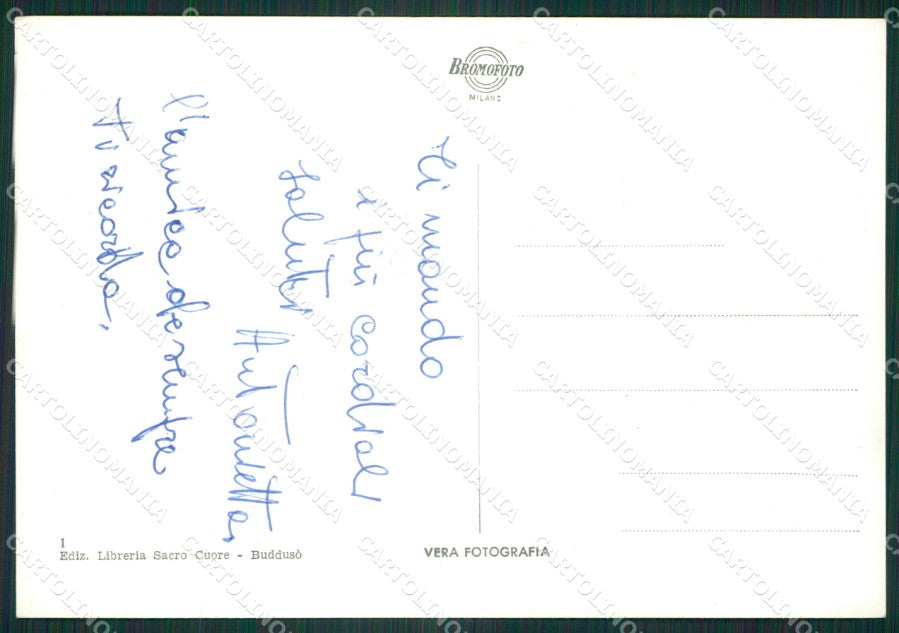 BROMOFOTO
MILANO
Ti mando
i più cordiali
saluti
Antonietta,
l'amica di sempre
ti ricorda.
1
Ediz. Libreria Sacro Cuore - Buddusò
VERA FOTOGRAFIA
CARTOLINOMANIA